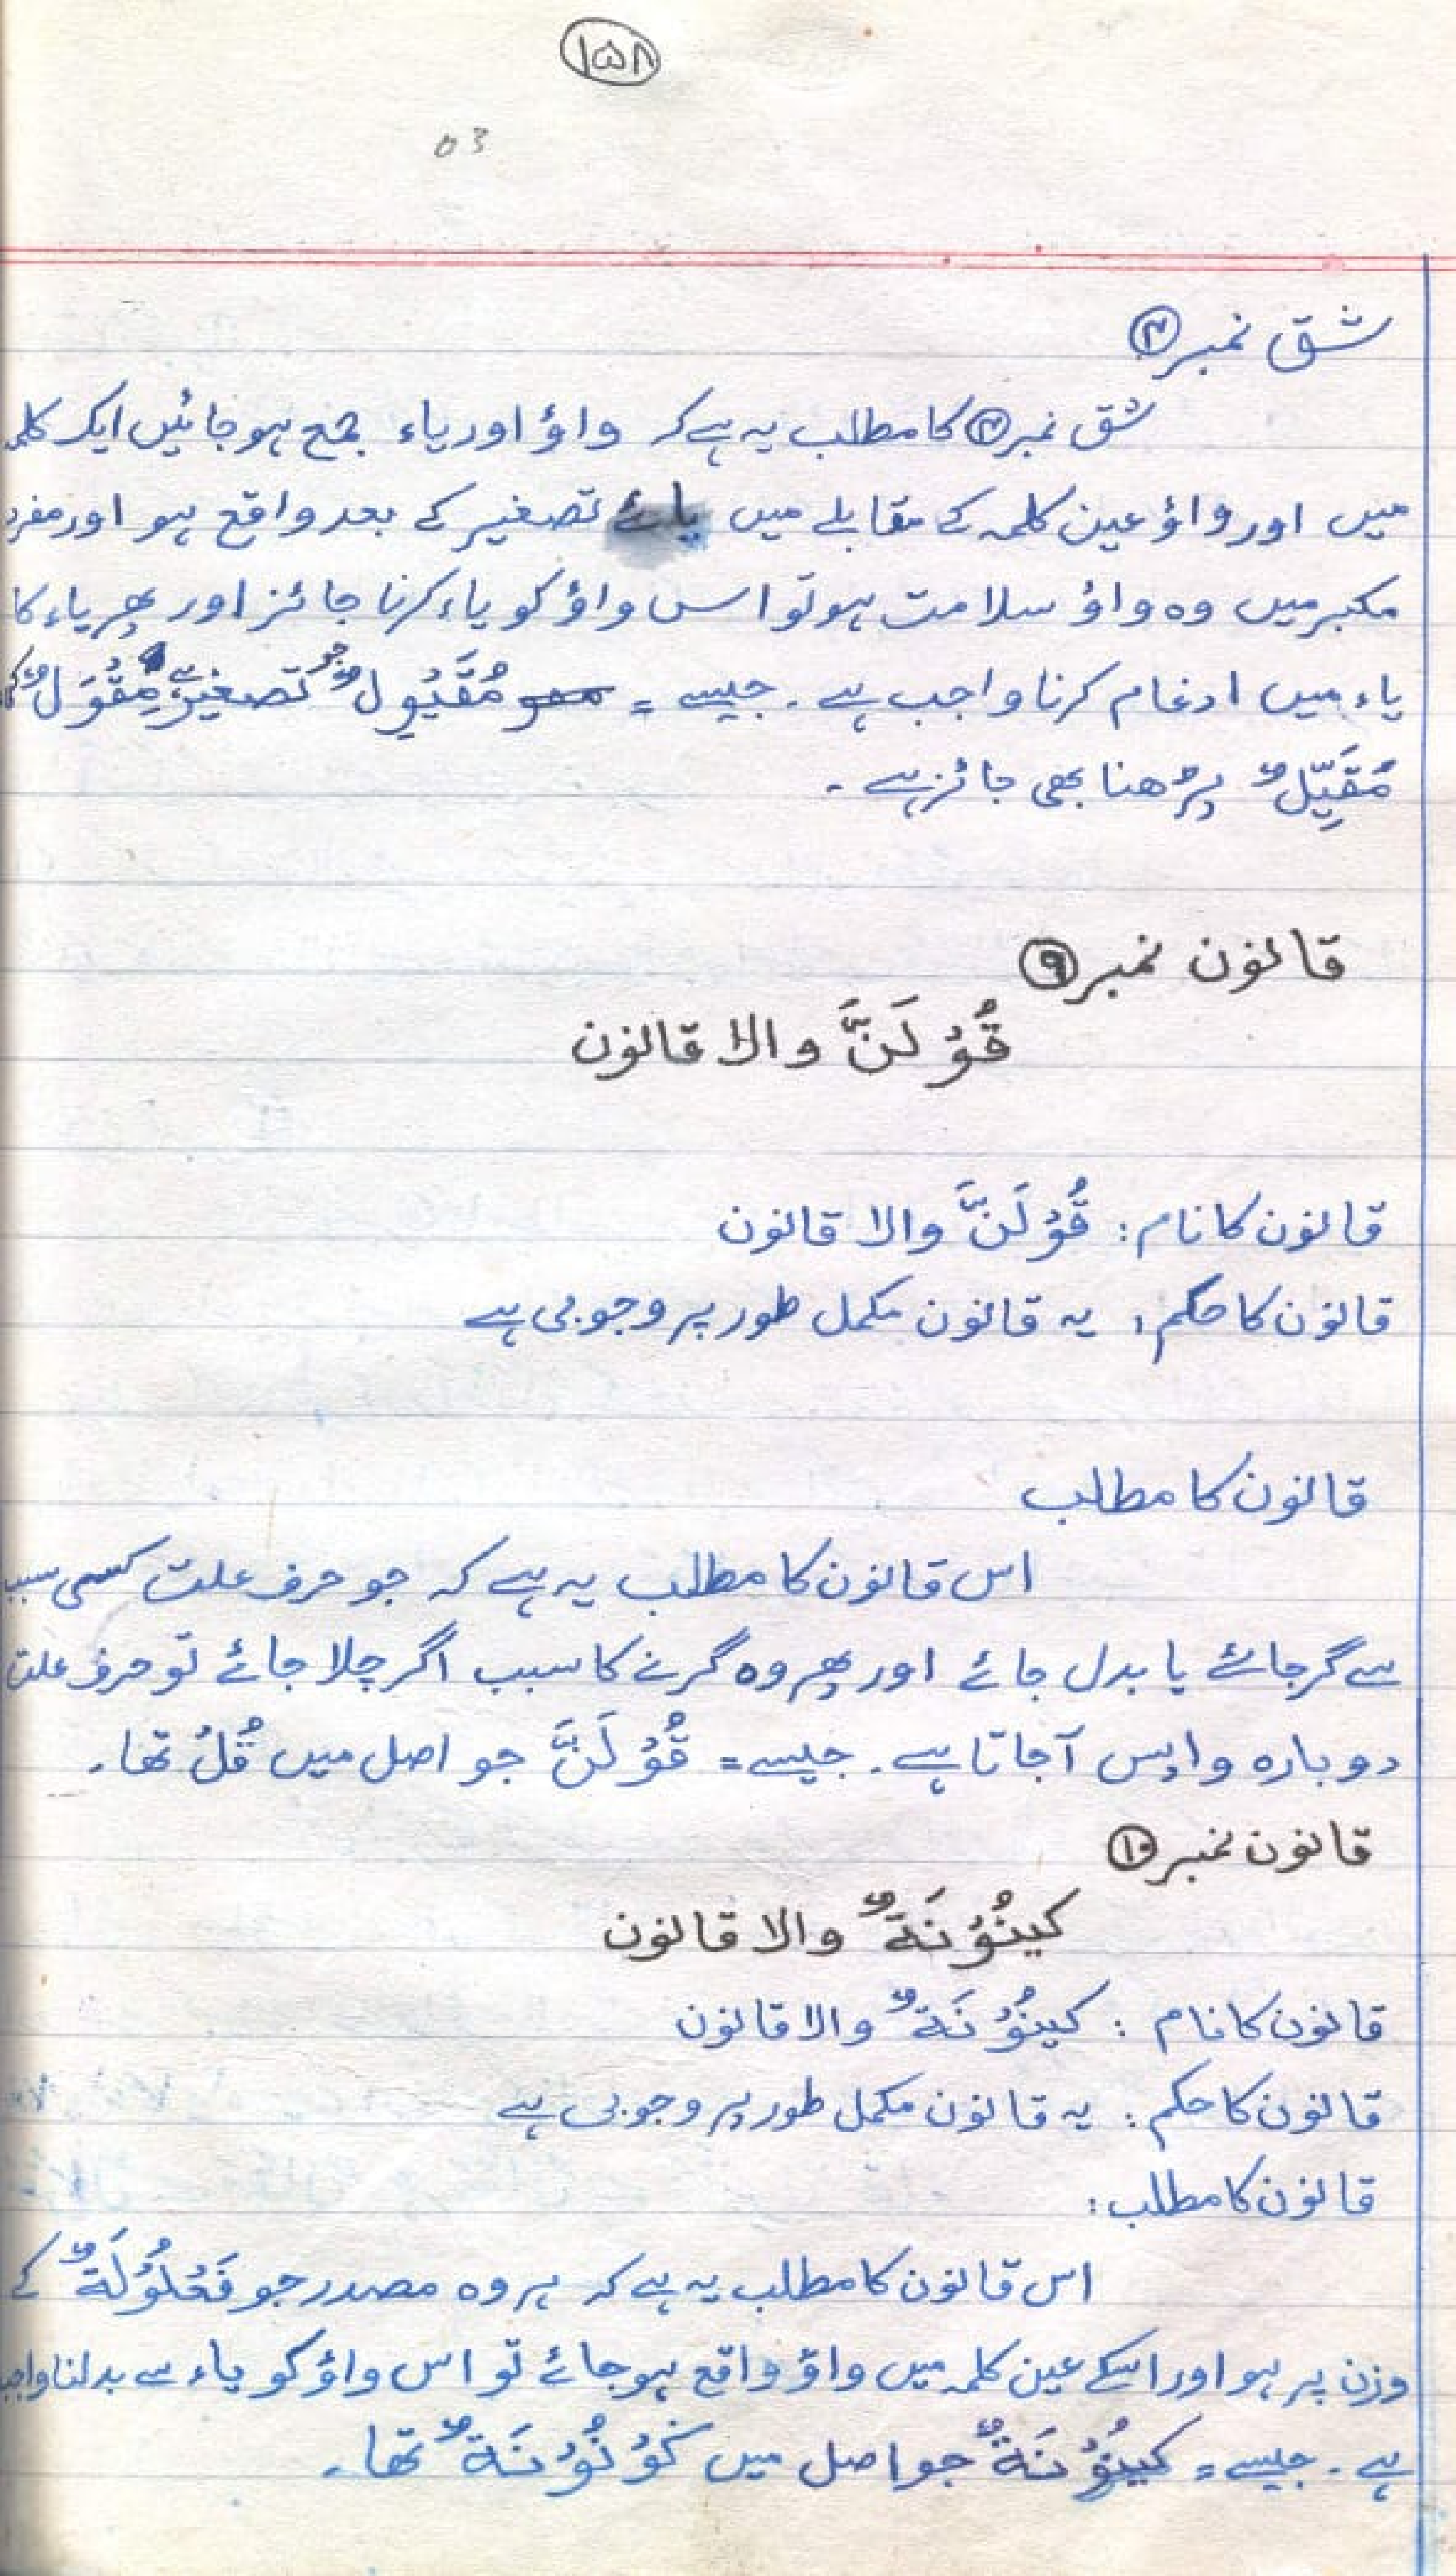 ۱۵۸
03
شق نمبر ۳
شق نمبر ۳ کا مطلب یہ ہے کہ واؤ اور یاء جمع ہو جائیں ایک کلمہ
میں اور واؤ عین کلمہ کے مقابلے میں یائے تصغیر کے بعد واقع ہو اور مفرد
مکبر میں وہ واؤ سلامت ہو تو اس واؤ کو یاء کرنا جائز اور پھر یاء کا
یاء میں ادغام کرنا واجب ہے ۔ جیسے = مُقَیْوِلٌ جو تصغیر ہے مِقْوَلٌ کی
مُقَیِّلٌ پڑھنا بھی جائز ہے ۔
قانون نمبر ۹
قُوْلَنَّ والا قانون
قانون کا نام : قُوْلَنَّ والا قانون
قانون کا حکم : یہ قانون مکمل طور پر وجوبی ہے
قانون کا مطلب
اس قانون کا مطلب یہ ہے کہ جو حرف علت کسی سبب
سے گر جائے یا بدل جائے اور پھر وہ گرنے کا سبب اگر چلا جائے تو حرف علت
دوبارہ واپس آجاتا ہے ۔ جیسے = قُوْلَنَّ جو اصل میں قُلْ تھا ۔
قانون نمبر ۱۰
کینُوْنَةٌ والا قانون
قانون کا نام : کینُوْنَةٌ والا قانون
قانون کا حکم : یہ قانون مکمل طور پر وجوبی ہے
قانون کا مطلب :
اس قانون کا مطلب یہ ہے کہ ہر وہ مصدر جو فَعْلُوْلَةٌ کے
وزن پر ہو اور اسکے عین کلمہ میں واؤ واقع ہو جائے تو اس واؤ کو یاء سے بدلنا واجب
ہے ۔ جیسے = کینُوْنَةٌ جو اصل میں کَوْنُوْنَةٌ تھا ۔